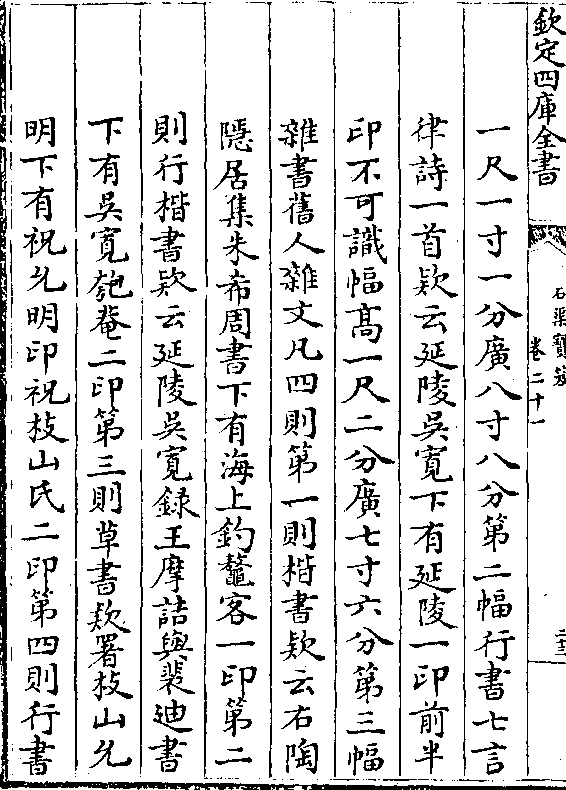 欽定四庫全書
石渠寶笈
卷二十一
一尺一寸一分廣八寸八分第二幅行書七言
律詩一首欵云延陵吳寬下有延陵一印前半
印不可識幅髙一尺二分廣七寸六分第三幅
雜書舊人雜文凡四則第一則楷書欵云右陶
隱居集朱希周書下有海上釣鼇客一印第二
則行楷書欵云延陵吳寛録王摩詰與裴迪書
下有吳寛匏菴二印第三則草書欵署枝山允
明下有祝允明印祝枝山氏二印第四則行書